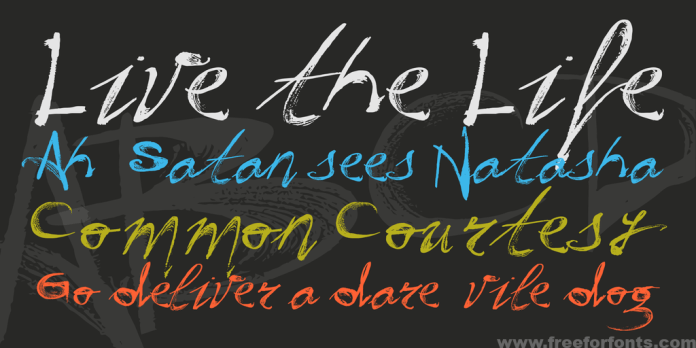 Live the Life
Ah Satan sees Natasha
Common Courtesy
Go deliver a dare vile dog
www.freeforfonts.com
ABCD